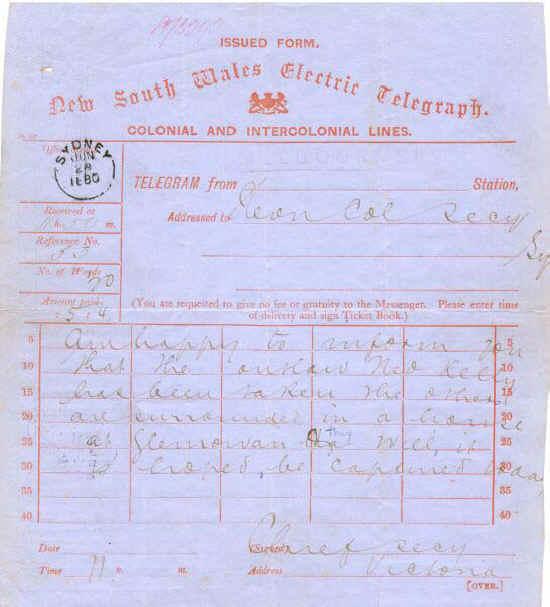 ISSUED FORM.
New South Wales Electric Telegraph.
COLONIAL AND INTERCOLONIAL LINES.
SYDNEY
JUN
28
1880
TELEGRAM from Station,
Addressed to Hon Col Secy
Sy
Received at m.
Reference No.
No. of Words 70
Amount paid 5 4
(You are requested to give no fee or gratuity to the Messenger. Please enter time
of delivery and sign Ticket Book.)
5 Am happy to inform you 5
10 that the outlaw Ned Kelly 10
15 has been taken the others 15
20 are surrounded in a house 20
25 at Glenrowan & will, it 25
30 is hoped, be captured today 30
35 35
40 40
Date Signed Chief Secy
Time 11 m. Address Victoria
[OVER.]